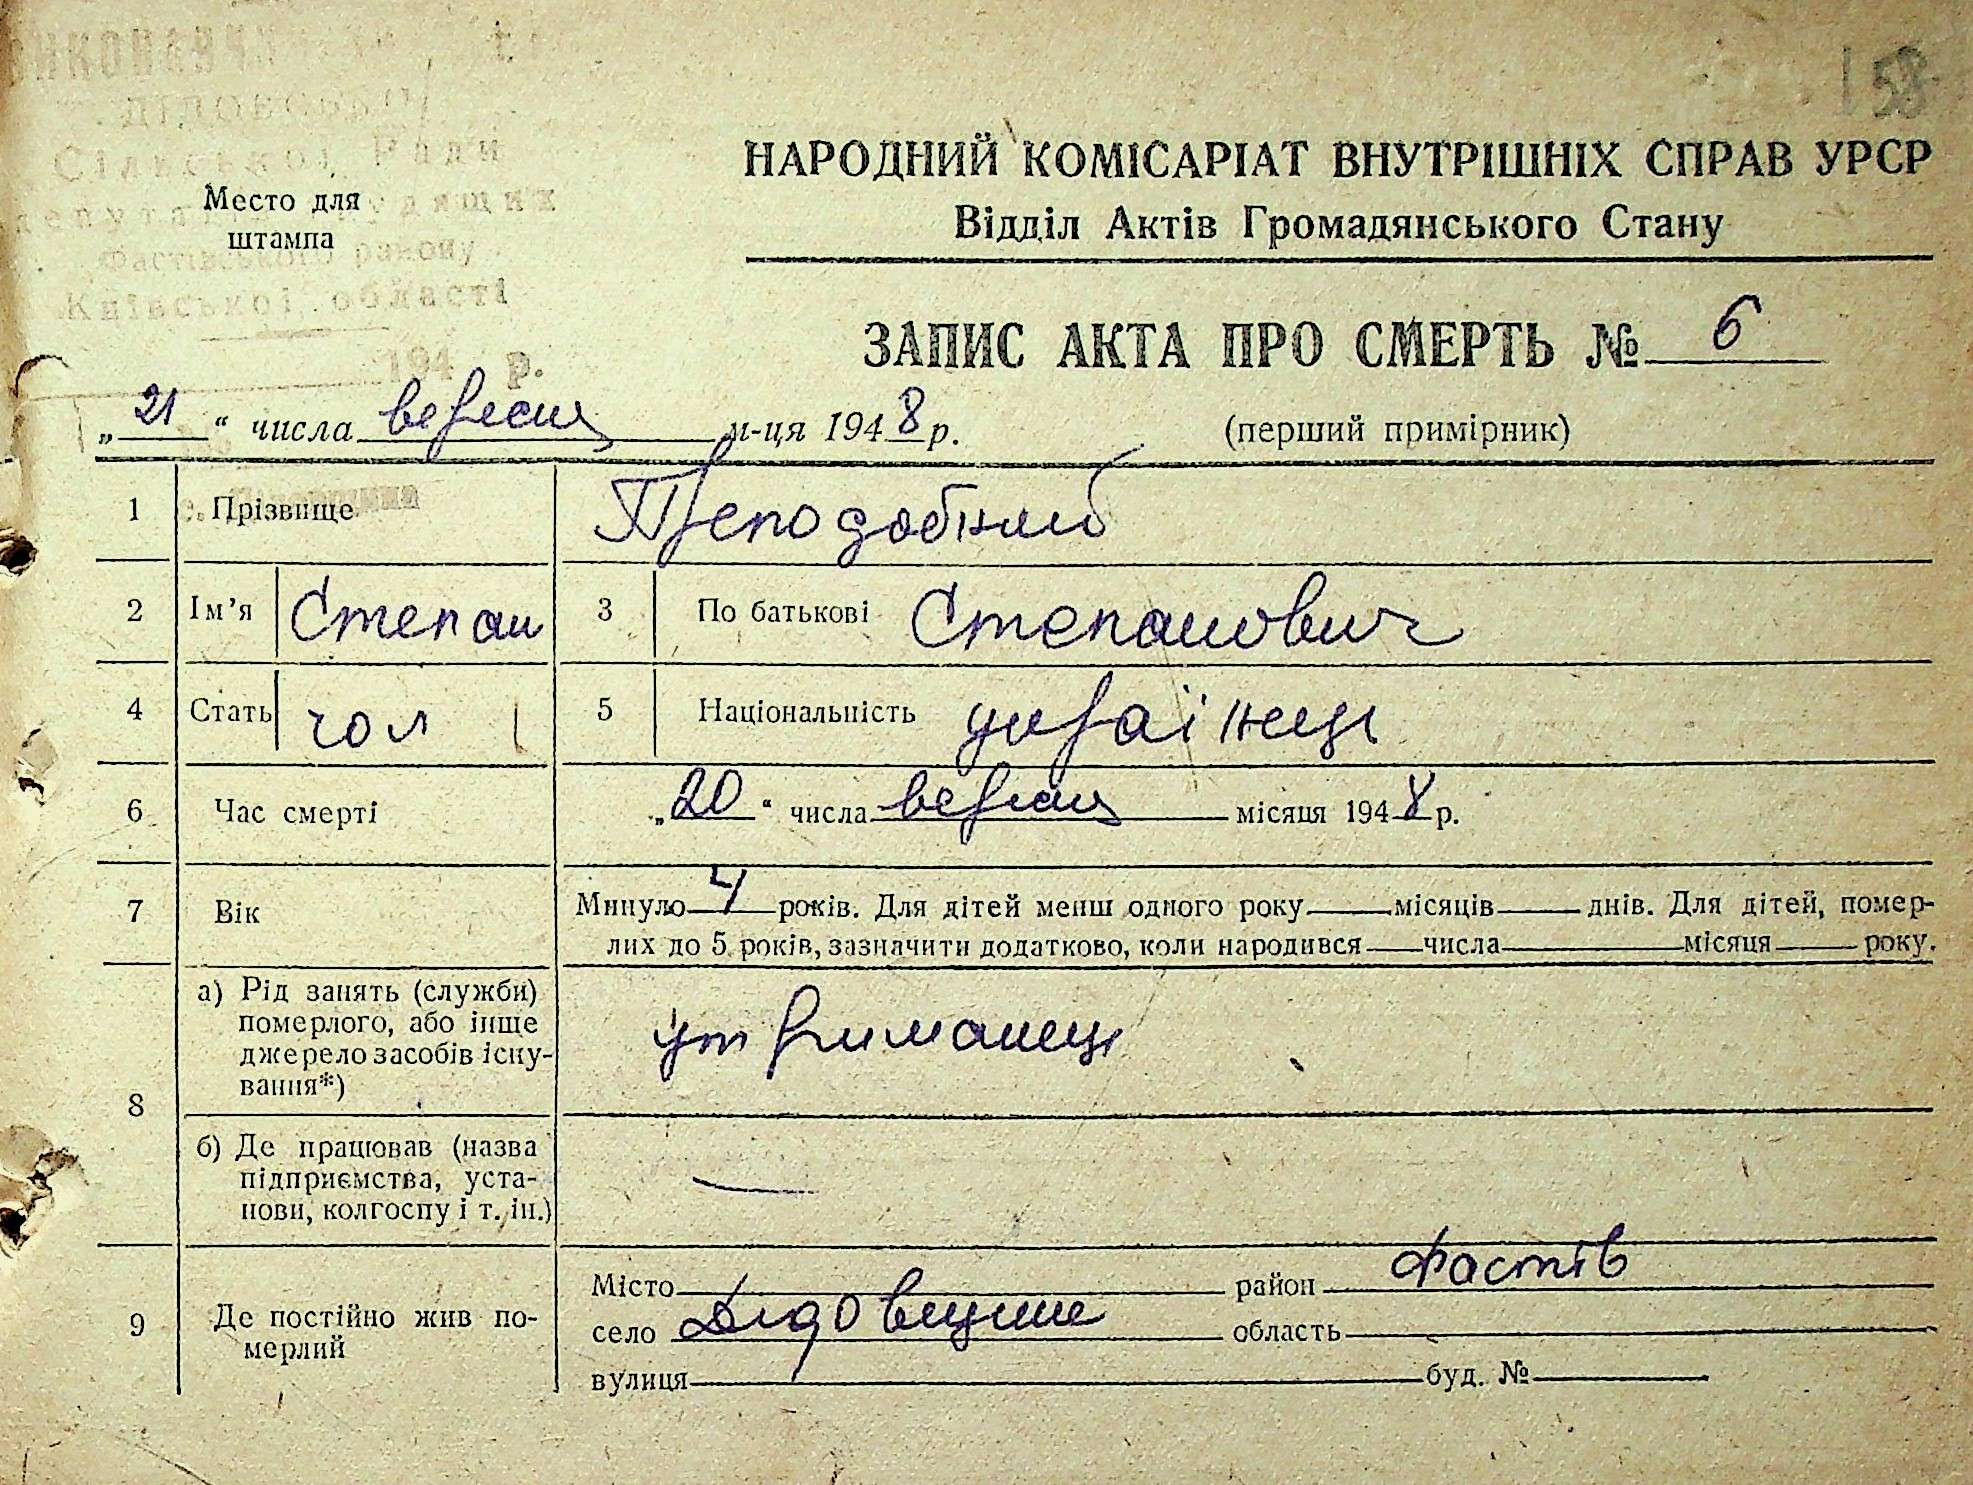 158
Сільської Ради
Фастівського району
Київської області
194 р.
Место для
штампа
НАРОДНИЙ КОМІСАРІАТ ВНУТРІШНІХ СПРАВ УРСР
Відділ Актів Громадянського Стану
ЗАПИС АКТА ПРО СМЕРТЬ № 6
„21“ числа вересня м-ця 1948 р. (перший примірник)
1 Прізвище Преподобний
2 Ім’я Степан 3 По батькові Степанович
4 Стать чол 5 Національність українець
6 Час смерті „20“ числа вересня місяця 1948 р.
7 Вік Минуло 4 років. Для дітей менш одного року місяців днів. Для дітей, помер-
лих до 5 років, зазначити додатково, коли народився числа місяця року.
8 а) Рід занять (служби)
померлого, або інще
джерело засобів існу-
вання*) утриманець
б) Де працював (назва
підприємства, уста-
нови, колгоспу і т. ін.) —
9 Де постійно жив по-
мерлий
Місто район Фастів
село Дідовщине область
вулиця буд. №